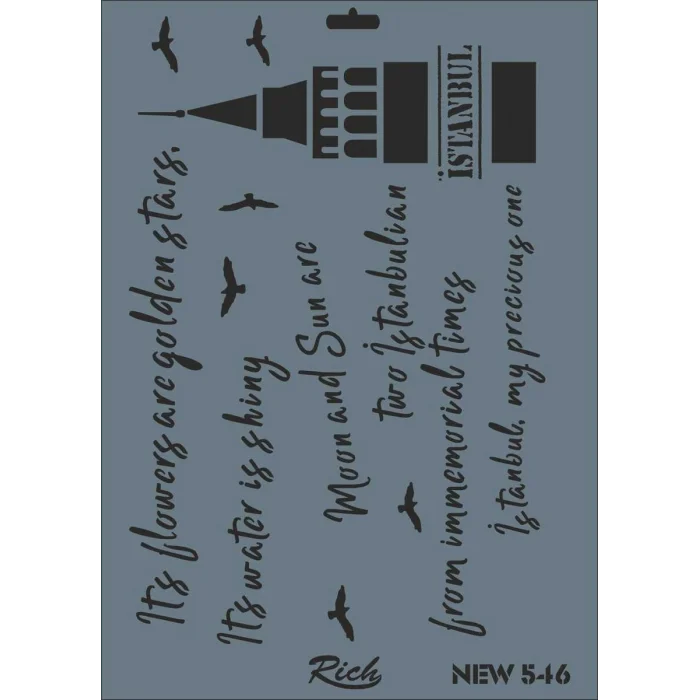 It's flowers are golden stars,
It's water is shiny
Moon and Sun are
two İstanbulian
from immemorial times
İstanbul, my precious one
İSTANBUL
Rich
NEW 546